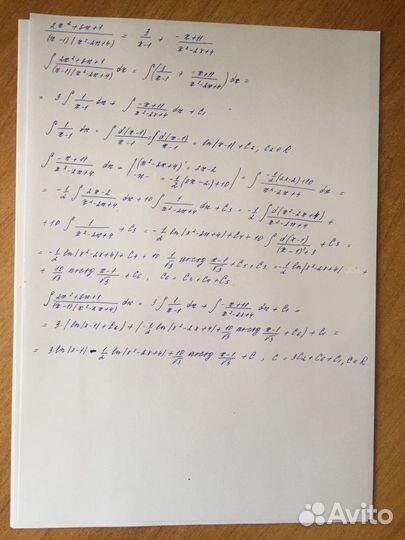 (2x²+6x+1)/((x-1)(x²-2x+4)) = 3/(x-1) + (-x+11)/(x²-2x+4)
∫ (2x²+6x+1)/((x-1)(x²-2x+4)) dx = ∫ (3/(x-1) + (-x+11)/(x²-2x+4)) dx =
= 3 ∫ 1/(x-1) dx + ∫ (-x+11)/(x²-2x+4) dx + C₁
∫ 1/(x-1) dx = ∫ d(x-1)/(x-1) = ln|x-1| + C₂, C₂∈R
∫ (-x+11)/(x²-2x+4) dx = |(x²-2x+4)' = 2x-2 = -½(2x-2)+10| = ∫ (-½(2x-2)+10)/(x²-2x+4) dx =
= -½ ∫ (2x-2)/(x²-2x+4) dx + 10 ∫ 1/(x²-2x+4) dx + C₃ = -½ ∫ d(x²-2x+4)/(x²-2x+4) +
+10 ∫ 1/(x²-2x+4) + C₃ = -½ ln|x²-2x+4| + C₄ + 10 ∫ d(x-1)/((x-1)²+3) + C₃ =
= -½ ln|x²-2x+4| + C₄ + 10 1/√3 arctg (x-1)/√3 + C₅ + C₃ = -½ ln|x²-2x+4| +
+ 10/√3 arctg (x-1)/√3 + C₆, C₆ = C₃+C₄+C₅
∫ (2x²+6x+1)/((x-1)(x²-2x+4)) dx = 3 ∫ 1/(x-1) dx + ∫ (-x+11)/(x²-2x+4) dx + C₁ =
= 3 (ln|x-1|+C₂) + (-½ ln|x²-2x+4| + 10/√3 arctg (x-1)/√3 + C₆) + C₁ =
= 3 ln|x-1| - ½ ln|x²-2x+4| + 10/√3 arctg (x-1)/√3 + C, C = 3C₂+C₆+C₁, C∈R
Avito